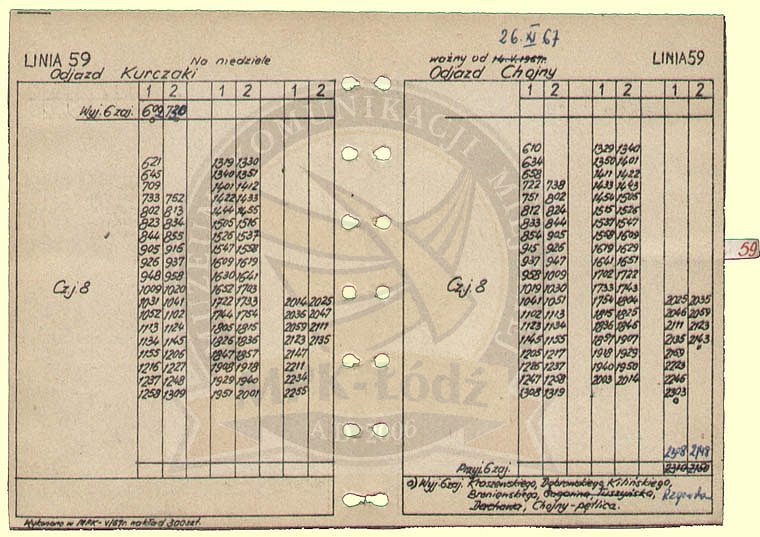 26.XI 67
LINIA 59
Na niedziele
Odjazd Kurczaki
1 2 1 2 1 2
Wyj. 6 zaj. 6 728
621 1319 1330
645 1340 1351
709 1401 1412
733 752 1422 1433
802 813 1444 1455
823 834 1505 1516
844 855 1526 1537
905 916 1547 1558
926 937 1609 1619
948 958 1630 1641
1009 1020 1652 1703
Czj 8
1031 1041 1722 1733 2014 2025
1052 1102 1744 1754 2036 2047
1113 1124 1805 1815 2059 2111
1134 1145 1826 1836 2123 2135
1155 1206 1847 1857 2147
1216 1227 1908 1918 2211
1237 1248 1929 1940 2234
1258 1309 1951 2001 2255
Wykonano w MPK - V/67r. nakład 300szt.
ważny od 14.V.1967r.
LINIA 59
Odjazd Chojny
1 2 1 2 1 2
610 1329 1340
634 1350 1401
658 1411 1422
722 738 1433 1443
751 802 1454 1505
812 824 1515 1526
833 844 1537 1547
854 905 1558 1609
915 926 1619 1629
937 947 1641 1651
958 1009 1702 1722
1019 1030 1733 1743
Czj 8
1041 1051 1754 1804 2025 2035
1102 1113 1815 1825 2046 2059
1123 1134 1836 1846 2111 2123
1145 1155 1857 1907 2135 2143
1205 1217 1918 1929 2159
1226 1237 1940 1950 2223
1247 1258 2003 2014 2246
1308 1319 2303
2308 2148
Przyj. 6 zaj.
a) Wyj. 6 zaj. Kraszewskiego, Dąbrowskiego, Kilińskiego,
Broniewskiego, Tuszyńska, Rzgowska
Dachowa, Chojny - pętlica.
59
KOMUNIKACJI
MPK-Łódź
A.D. 2006